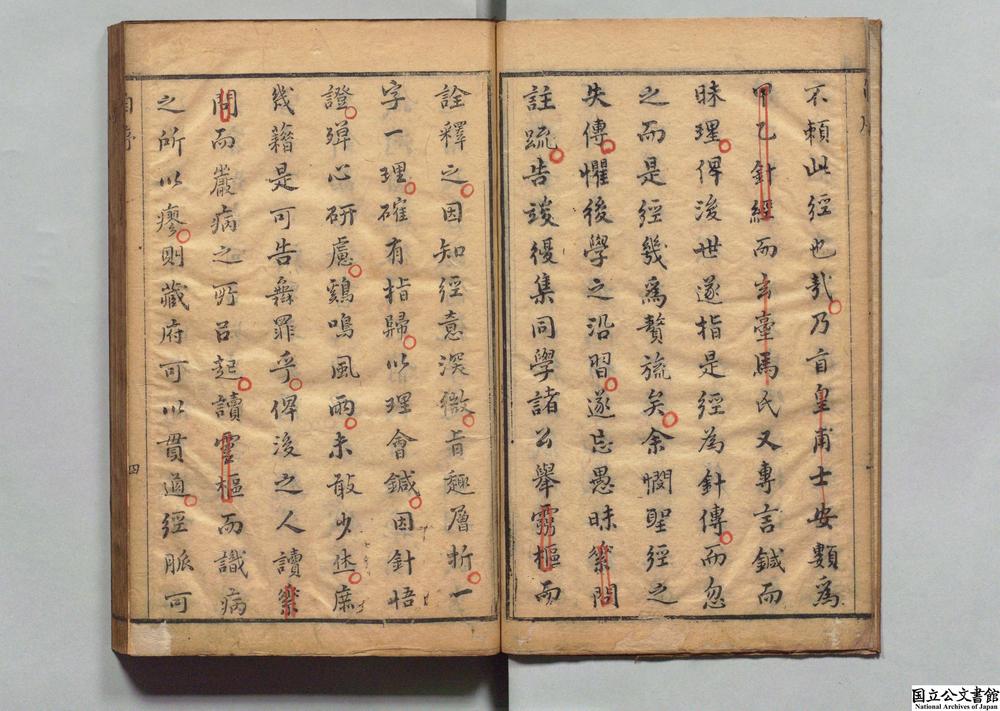 不賴此經也哉乃自皇甫士安類爲
甲乙針經而玄臺馬氏又專言鍼而
昧理俾後世遂指是經為針傳而忽
之而是經幾爲贅旒矣余憫聖經之
失傳懼後學之沿習遂忘愚昧素問
註疏告竣復集同學諸公舉靈樞而
詮釋之因知經意深微旨趣層析一
字一理確有指歸以理會鍼因針悟
證殫心研慮鷄鳴風雨未敢少休庶
幾藉是可告無罪乎俾後之人讀素
問而嚴病之所以起讀靈樞而識病
之所以瘳則藏府可以貫通經脈可
自序
四
国立公文書館
National Archives of Japan